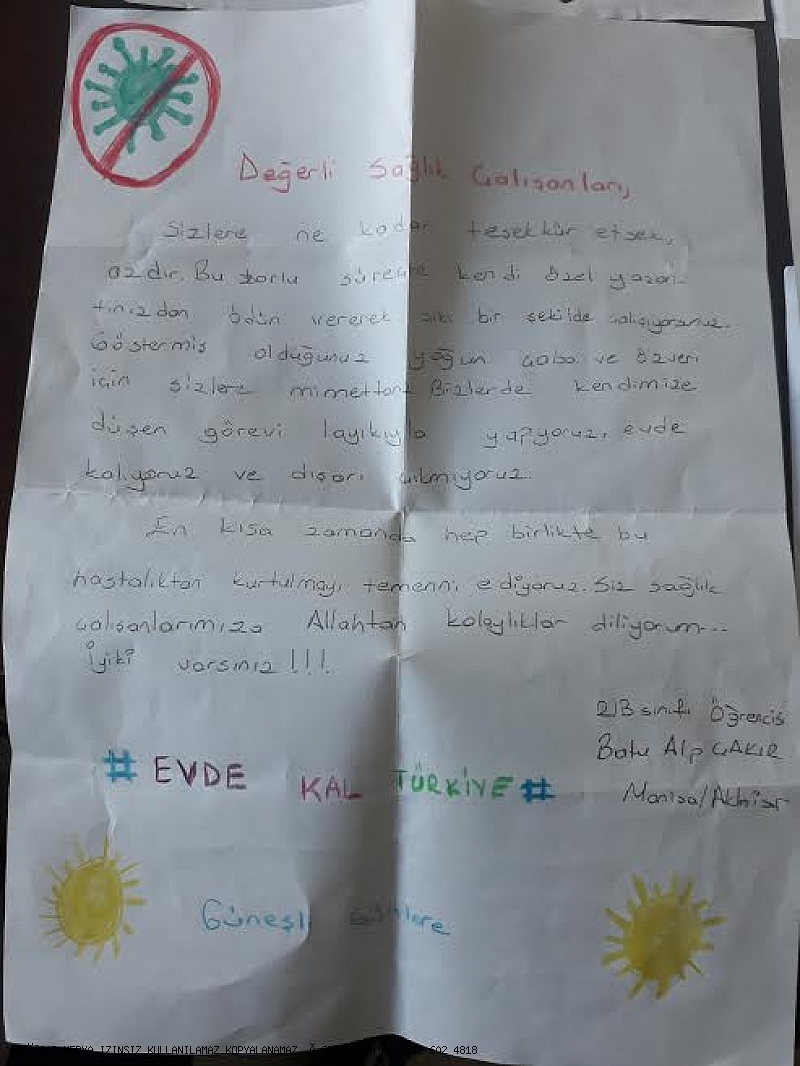 Değerli Sağlık Çalışanları,
Sizlere ne kadar teşekkür etsek,
azdır. Bu zorlu süreçte kendi özel yaşan-
tınızdan ödün vererek sıkı bir şekilde çalışıyorsunuz.
Göstermiş olduğunuz yoğun çaba ve özveri
için sizlere minnettarız Bizlerde kendimize
düşen görevi layıkıyla yapıyoruz, evde
kalıyoruz ve dışarı çıkmıyoruz.
En kısa zamanda hep birlikte bu
hastalıktan kurtulmayı temenni ediyoruz. Siz sağlık
çalışanlarımıza Allahtan kolaylıklar diliyorum...
İyiki varsınız !!!.
2/B sınıfı Öğrencisi
Batu Alp ÇAKIR
Manisa/Akhisar
# EVDE KAL TÜRKİYE #
Güneşli Günlere
MEDYA IZINSIZ KULLANILAMAZ KOPYALANAMAZ 602 4818